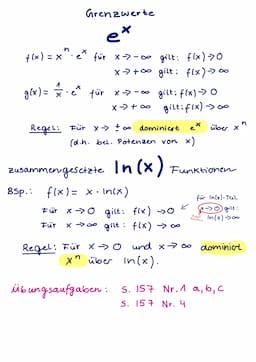 Grenzwerte
eˣ
f(x) = xⁿ · eˣ für x → -∞ gilt: f(x) → 0
x → +∞ gilt: f(x) → ∞
g(x) = 1/x · eˣ für x → -∞ gilt: f(x) → 0
x → +∞ gilt: f(x) → ∞
Regel: Für x → ±∞ dominiert eˣ über xⁿ
(d.h. bel. Potenzen von x)
zusammengesetzte ln(x) Funktionen
BSp.: f(x) = x · ln(x)
für ln(x)-Teil
Für x → 0 gilt: f(x) → 0
x → 0 gilt:
ln(x) → ∞
Für x → ∞ gilt: f(x) → ∞
Regel: Für x → 0 und x → ∞ dominiert
xⁿ über ln(x).
Übungsaufgaben: S. 157 Nr. 1 a, b, c
S. 157 Nr. 4